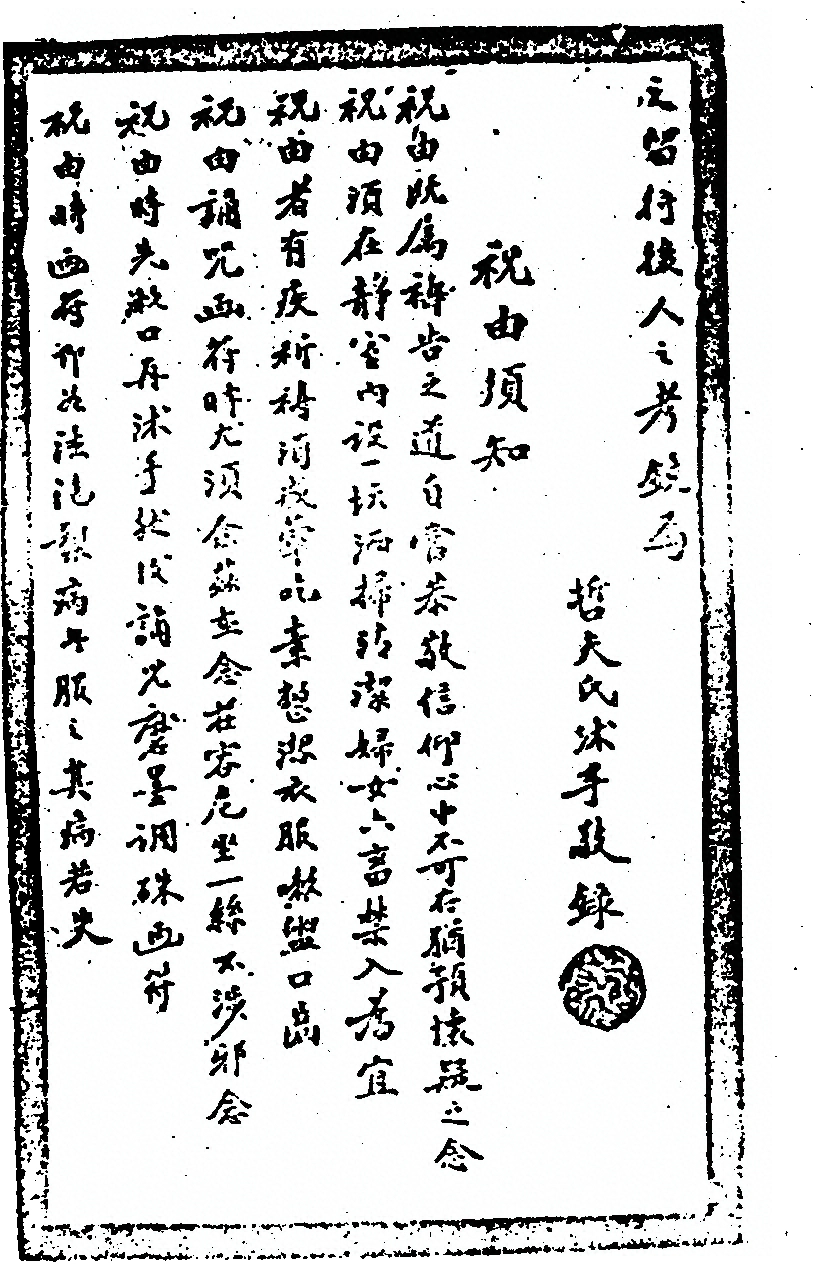 之留待後人之考鏡焉
哲夫氏沐手敬錄
祝由須知
祝由既属禱告之道自當恭敬信仰心中不可存猶預懷疑之念
祝由須在靜室内設一坛洒掃致潔婦女六畜禁入為宜
祝由者有疾祈禱須戒葷吃素整潔衣服漱盥口齒
祝由誦咒画符時尤須念兹在念莊容危坐一絲不涉邪念
祝由時先漱口再沐手然後誦咒磨墨調硃画符
祝由時画符即如法 病者服之其病若失